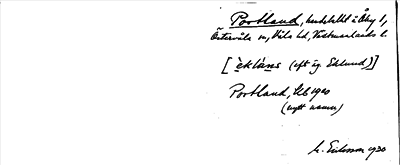 Portland, hemställt i Åby 1,
Östervåla sn, Våla hd, Västmanlands l.
[èklùns (eft. äg. Eklund)]
Portland, EB 1940
(nytt namn)
M. Eriksson 1930